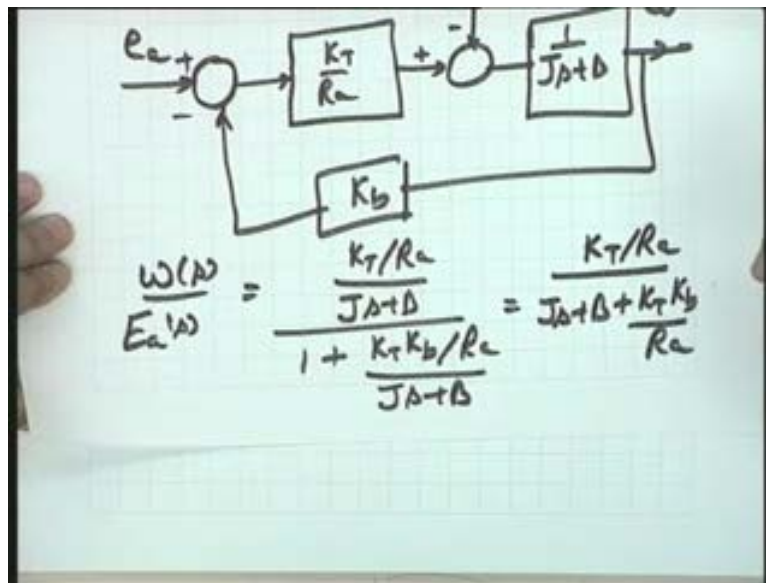 ea + - KT/Ra + - 1/(Js+B) ω
Kb
ω(s)/Ea(s) = (KT/Ra/(Js+B))/(1 + (KT Kb/Ra)/(Js+B)) = (KT/Ra)/(Js+B+KT Kb/Ra)